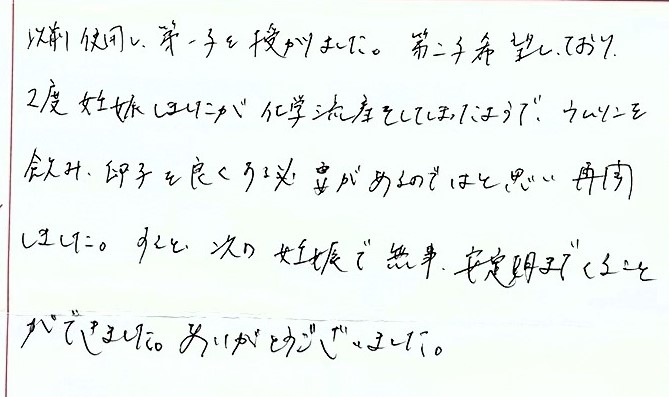 以前使用し、第一子を授かりました。第二子希望しており、
2度妊娠しましたが化学流産をしてしまったようで、ウムリンを
飲み、卵子を良くする必要があるのではと思い再開
しました。すると、次の妊娠で無事、安定期までくること
ができました。ありがとうございました。